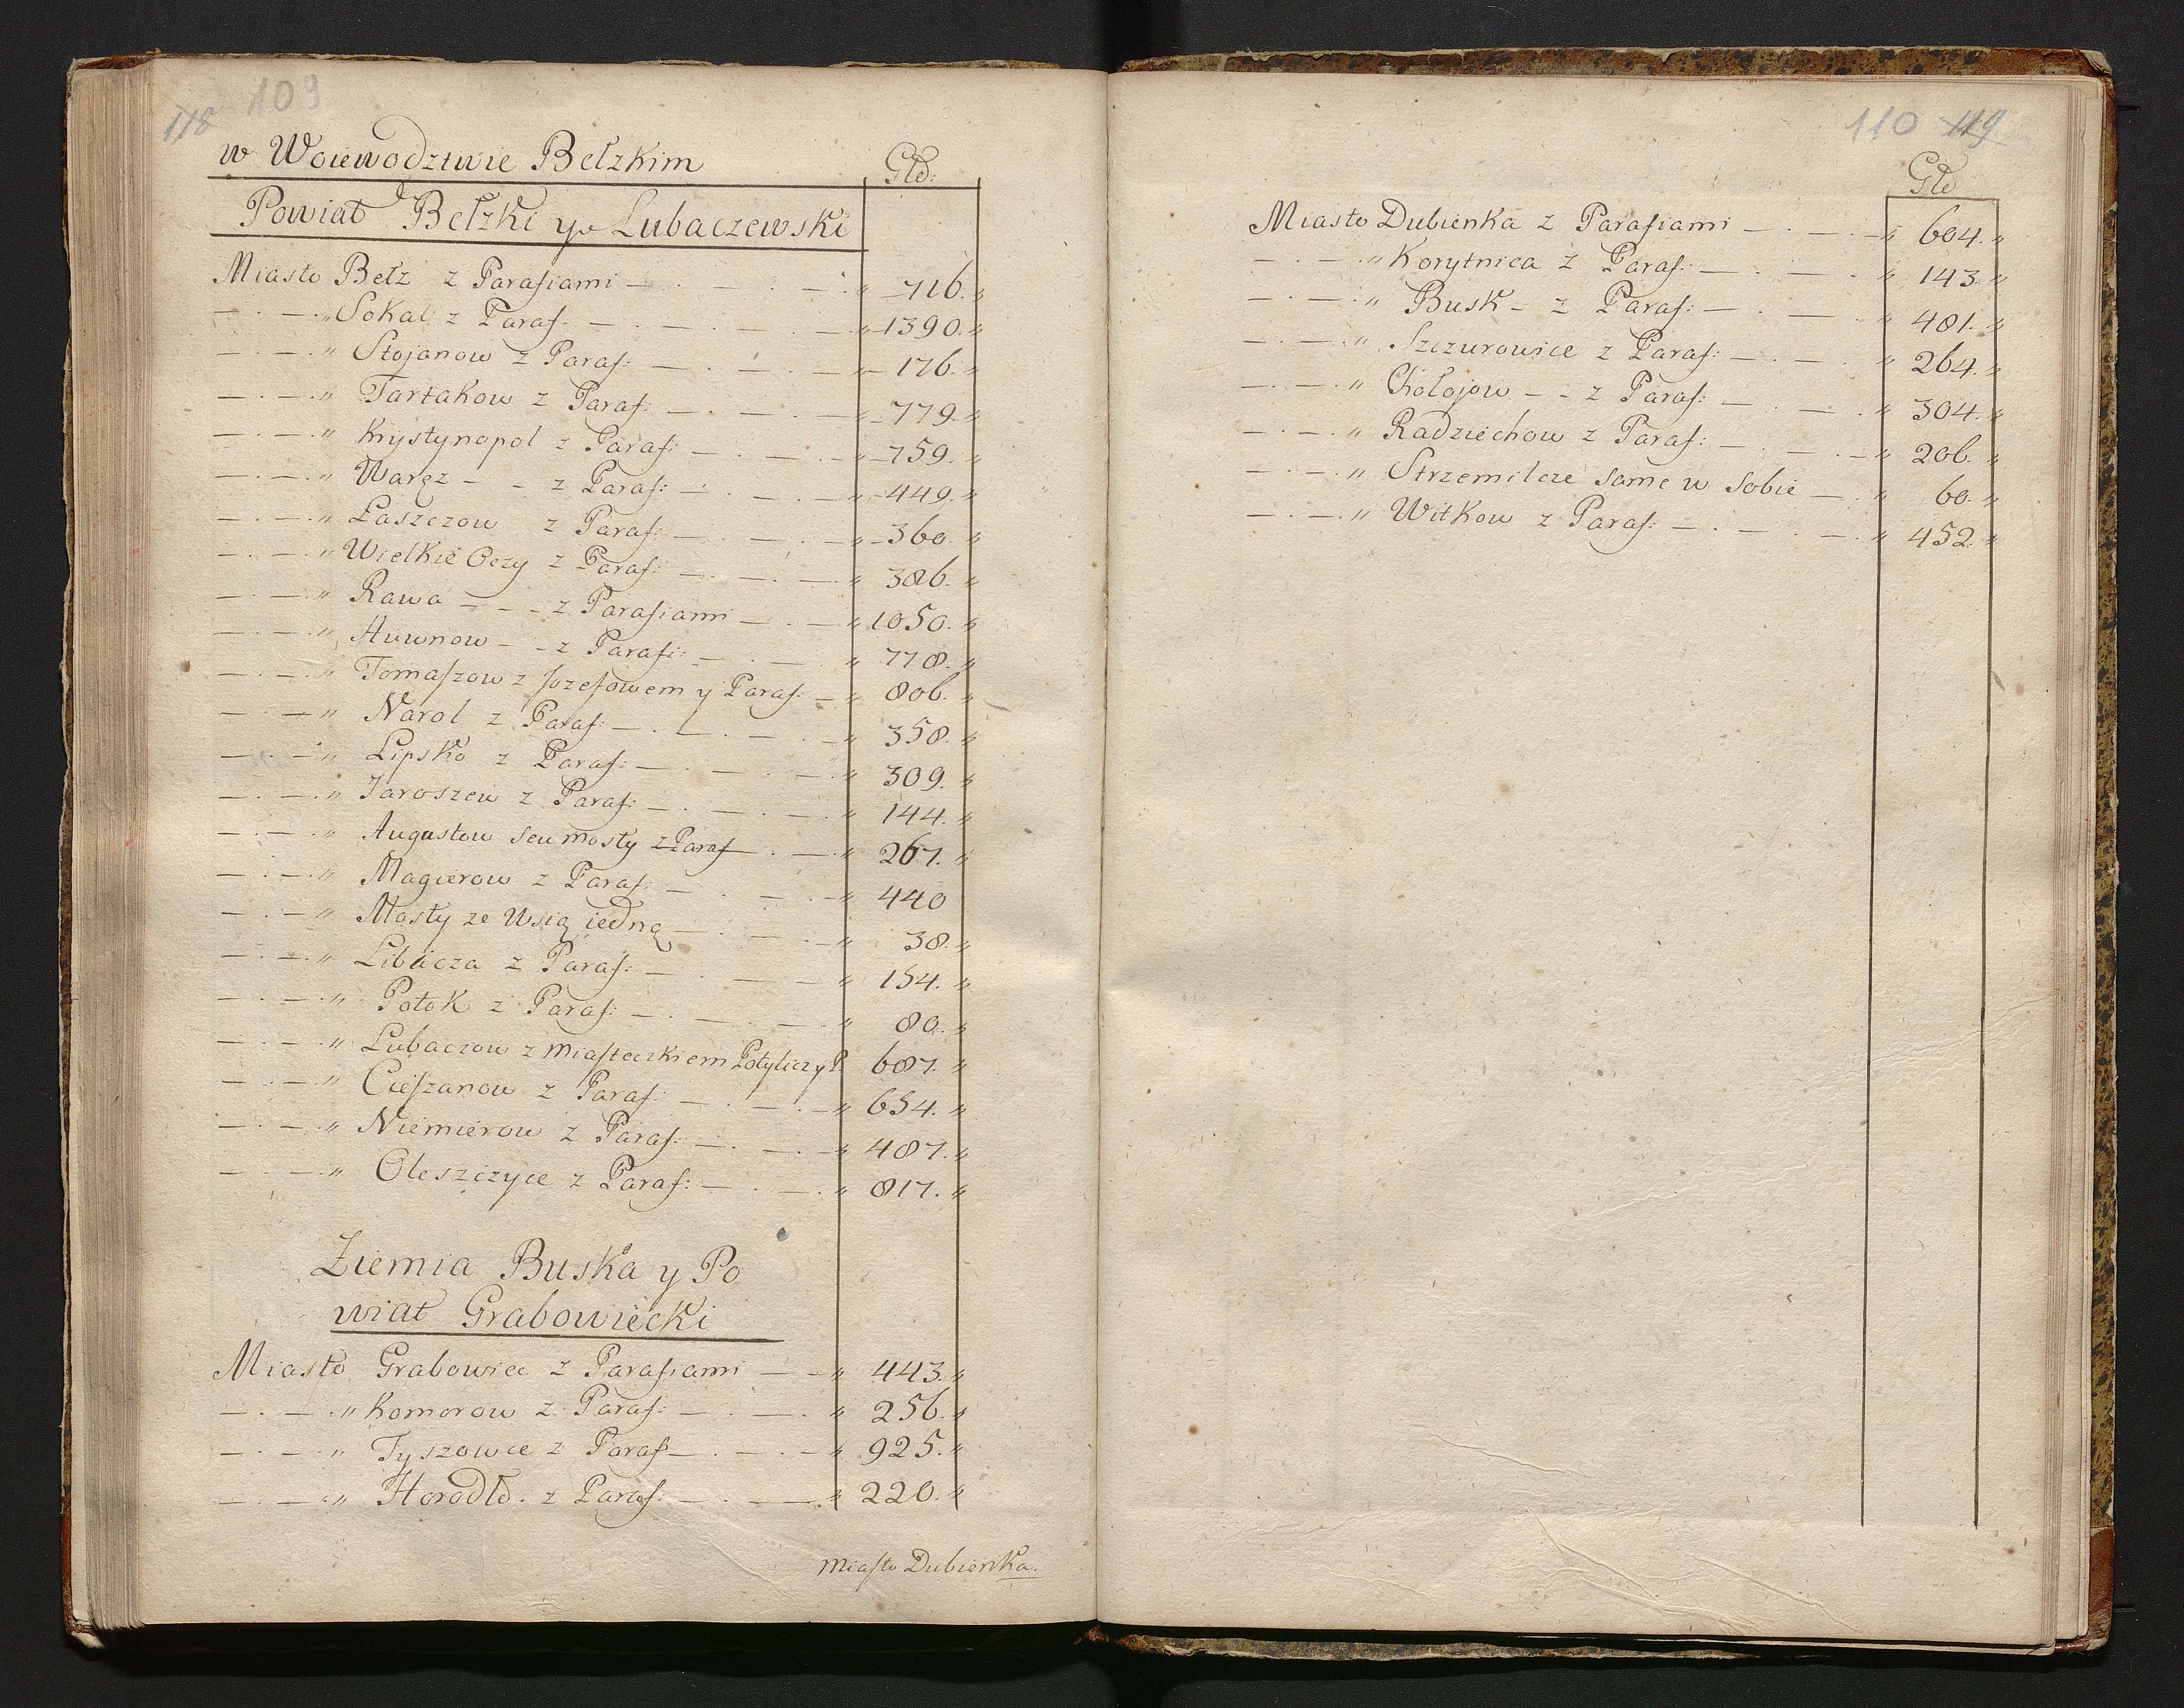 118 109
w Woiewodztwie Bełzkim Głd:
Powiat Bełzki y Lubaczewski
Miasto Bełz z Parafiami — . — . — " 716. "
— . — . " Sokal z Paraf: — . — . — " 1390. "
— . — . " Stojanow z Paraf: — . — . — " 176. "
— . — . " Tartakow z Paraf: — . — . — " 779. "
— . — . " Krystynopol z Paraf: — . — . — " 759. "
— . — . " Waręz - - z Paraf: — . — . — " 449. "
— . — . " Łaszczow z Paraf: — . — . — " 360. "
— . — . " Wielkie Oczy z Paraf: — . — . — " 386. "
— . — . " Rawa - - - z Parafiami — . — " 1050. "
— . — . " Huwnow - - z Parafi: — . — " 778. "
— . — . " Tomaszow z Jozefowem y Paraf: — " 806. "
— . — . " Narol z Paraf: — . — . — " 358. "
— . — . " Lipsko z Paraf: — . — . — " 309. "
— . — . " Jaroszew z Paraf: — . — . — " 144. "
— . — . " Augustow seu Mosty z Paraf — . — " 267. "
— . — . " Magierow z Paraf: — . — . — " 440
— . — . " Mosty ze Wsią iedną — . — . — " 38. "
— . — . " Libacza z Paraf: — . — — " 154. "
— . — . " Potok z Paraf: — . — . — " 80. "
— . — . " Lubaczow z Miasteczkiem Potylicz y P. 687. "
— . — . " Cieszanow z Paraf: — . — . — " 654. "
— . — . " Niemierow z Paraf: — . — . — " 487. "
— . — . " Oleszczyce z Paraf: — . — . " 817. "
Ziemia Buska y Po
wiat Grabowiecki
Miasto Grabowiec z Parafiami — — " 443. "
— . — . " Komorow z Paraf: — . — . " 256. "
— . — . " Tyszowce z Paraf — . — . — " 925. "
— . — . " Horodło. z Paraf: — . — . " 220. "
Miasto Dubienka.
110 119
Głd
Miasto Dubienka z Parafiami — . — . — " 604. "
— . — . " Korytnica z Paraf: — . — . " 143. "
— . — . " Busk - z Paraf: — . — . " 481. "
— . — . " Szczurowice z Paraf: — . — . " 264. "
— . — . " Chołojow - - z Paraf: — . — . " 304. "
— . — . " Radziechow z Paraf: — . — . — " 206. "
— . — . " Strzemilcze same w sobie — . " 60. "
— . — . " Witkow z Paraf: — . — . — . " 452. "